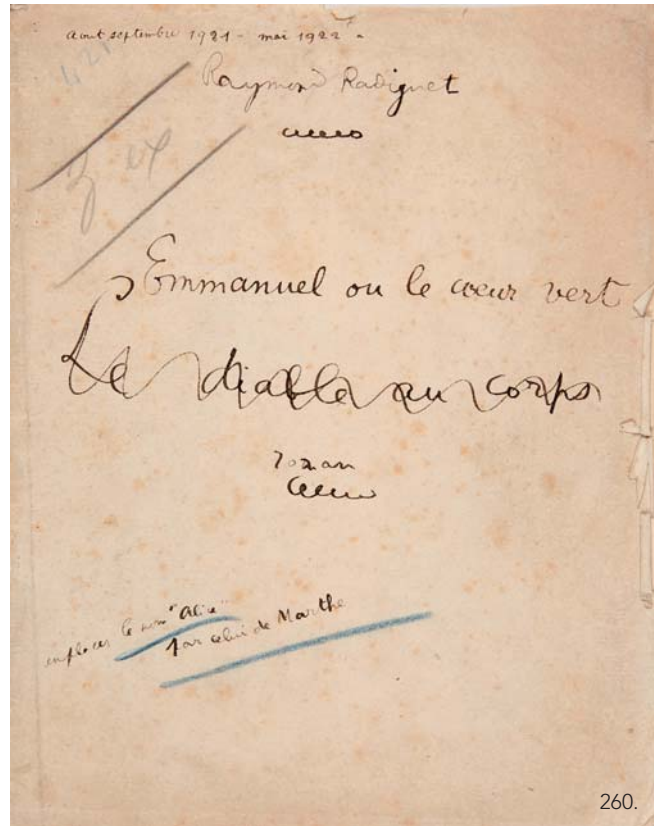 Aout septembre 1921 - mai 1922 -
Raymond Radiguet
3 ex
Emmanuel ou le cœur vert
Le diable au corps
roman
remplacer le nom "Alice"
par celui de Marthe
260.